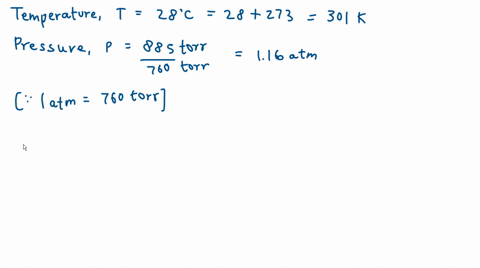 Temperature, T = 28°C = 28 + 273 = 301 K
Pressure, P = 885 torr / 760 torr = 1.16 atm
[∵ 1 atm = 760 torr]